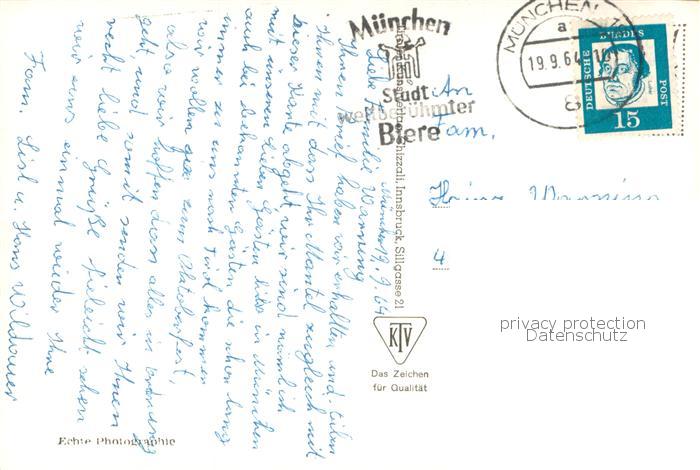 München 19.9.64
Liebe Familie Wirnsing
Ihren Brief haben wir erhalten und teilen
Ihnen mit dass Ihr Mantel zugleich mit
dieser Karte abgeht wir sind nämlich
mit unseren lieben Gästen hier in München
auch bei bekannten Gästen die schon lang
immer zu uns nach Tirol kommen
wir wollen zum Oktoberfest,
also wir hoffen dass alles in Ordnung
geht, und somit senden wir Ihnen
recht liebe Grüße vieleicht sehen
wir uns einmal wieder Ihre
Fam. Lisl u. Hans Wildauer
Echte Photographie
Chizzali, Innsbruck, Sillgasse 21
KTV
Das Zeichen
für Qualität
München
Stadt
weltberühmter
Biere
MÜNCHEN
a
19.9.64
8
DEUTSCHE BUNDES POST
15
An
Fam.
Heinz
4
privacy protection
Datenschutz